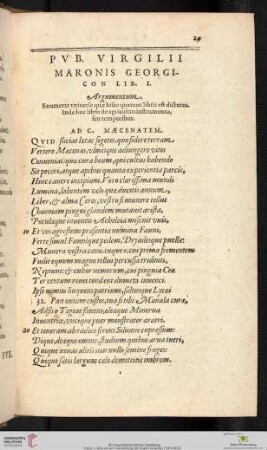 29
PVB. VIRGILII
MARONIS GEORGI-
CON LIB. I.
Argumentum.
Enumerat vniuersè quæ hisce quatuor libris est dicturus.
Inde hoc libro de agricultura instrumento,
seu temporibus.
AD C. MAECENATEM.
QVID faciat lætas segetes, quo sidere terram
Vertere Mæcenas, vlmisque adiungere vites
Conueniat: quæ cura boum, qui cultus habendo
Sit pecori, atque apibus quanta experientia parcis,
Hinc canere incipiam. Vos ô clarissima mundi
Lumina, labentem cælo quæ ducitis annum,
Liber, & alma Ceres, vestro si munere tellus
Chaoniam pingui glandem mutauit arista,
Poculaque inuentis Acheloia miscuit vuis,
10 Et vos agrestum præsentia numina Fauni,
Ferte simul Faunique pedem, Dryadesque puellæ:
Munera vestra cano. tuque ô, cui prima frementem
Fudit equum magno tellus percussa tridenti,
Neptune: & cultor nemorum, cui pinguia Ceæ
Ter centum niuei tondent dumeta iuuenci.
Ipse nemus linquens patrium, saltusque Lycæi
Pan ouium custos, tua si tibi Mænala curæ,
Adsis ô Tegeæe fauens, oleæque Minerua
Inuentrix, vncique puer monstrator aratri.
20 Et teneram ab radice ferens Siluane cupressum:
Dique, deæque omnes, studium quibus arua tueri,
Quique nouas alitis non vllo semine fruges:
Quique satis largum cælo demittitis imbrem.